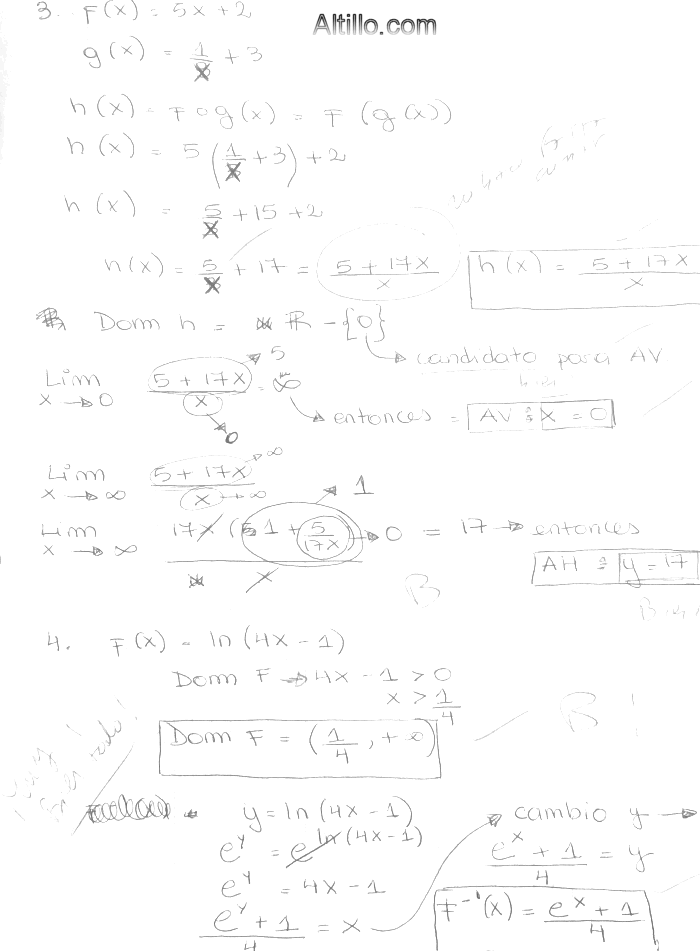 3. F(x) = 5x + 2
Altillo.com
g(x) = 1/x + 3
h(x) = F o g(x) = F (g(x))
h(x) = 5 (1/x + 3) + 2
h(x) = 5/x + 15 + 2
h(x) = 5/x + 17 = (5 + 17x)/x
h(x) = (5 + 17x)/x
Dom h = ℝ - {0}
candidato para AV
Lim x → 0 (5 + 17x)/x = ∞
5
0
entonces = AV : x = 0
Lim x → ∞ (5 + 17x)/x
→ ∞
→ ∞
Lim x → ∞ 17x (1 + 5/17x)/x → 0 = 17 → entonces
1
AH : y = 17
B
4. F(x) = ln (4x - 1)
Dom F → 4x - 1 > 0
x > 1/4
Dom F = (1/4, + ∞)
B!
y = ln (4x - 1)
e^y = e^ln (4x - 1)
e^y = 4x - 1
(e^y + 1)/4 = x
cambio y →
(e^x + 1)/4 = y
F^-1(x) = (e^x + 1)/4